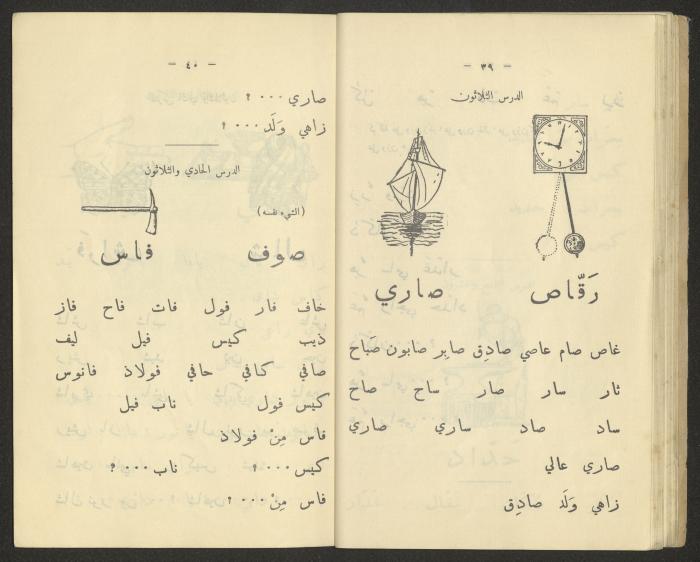 - ٣٩ -
الدرس الثلاثون
رَقّاص صاري
غاص صام عاصي صادِق صابِر صابون صَباح
ثار سار صار ساح صاح
ساد صاد ساري صاري
صاري عالي
زاهي وَلَد صادِق
- ٤٠ -
صاري ٠٠٠ ؟
زاهي وَلَد ٠٠٠ ؟
الدرس الحادي والثلاثون
(الشيء نفسه)
صوف فاس
خاف فار فول فات فاح فاز
ذيب كيس فيل ليف
صافي كافي حافي فولاذ فانوس
كيس فول ناب فيل
فاس مِنْ فولاذ
كيس ٠٠٠ ؟ ناب ٠٠٠ ؟
فاس مِنْ ٠٠٠ ؟